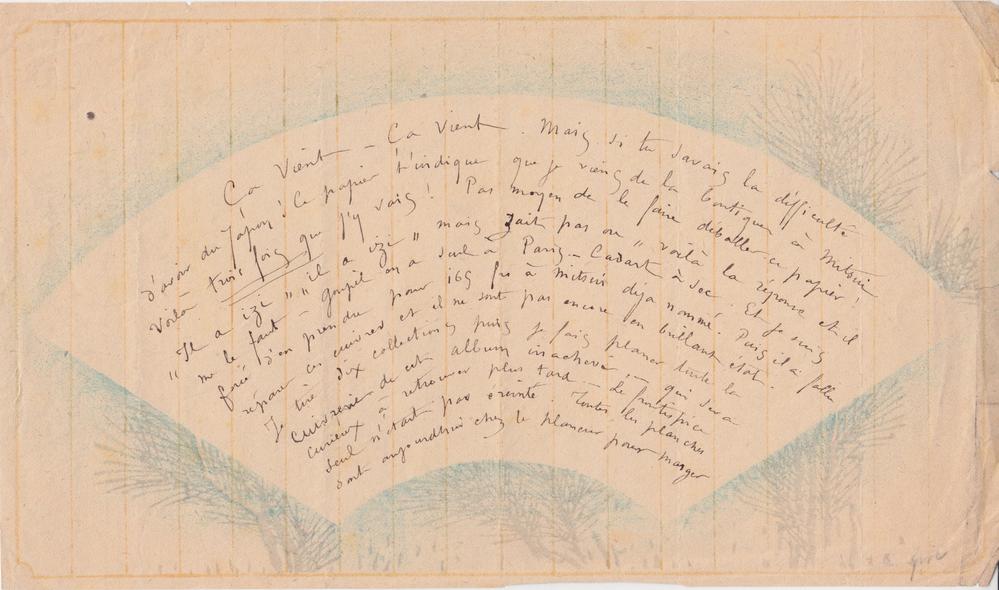 Ca Vient – Ca Vient. Mais si tu savais la difficulté
d'avoir du Japon! Ce papier t'indique que je viens de la boutique à Mitsui
Voilà trois fois que j'y vais! Pas moyen de le faire déballer ce papier!
"Il a izi" "il a izi" mais pas ou "voilà la réponse et il
me le faut – Goupil en a seul à Paris – Cadart à sec. Et je suis
forcé d'en prendre pour 165 frs à Mitsui déja nommé. Puis il a fallu
réparer ces cuivres et il ne sont pas encore en brillant état.
Je tire dix collections puis je fais planer toute la
cuivrerie de cet album inachevé, – qui sera
curieux à retrouver plus tard – Le frontispice
seul n'était pas éreinté. Toutes les planches
sont aujourdhui chez le planeur pour